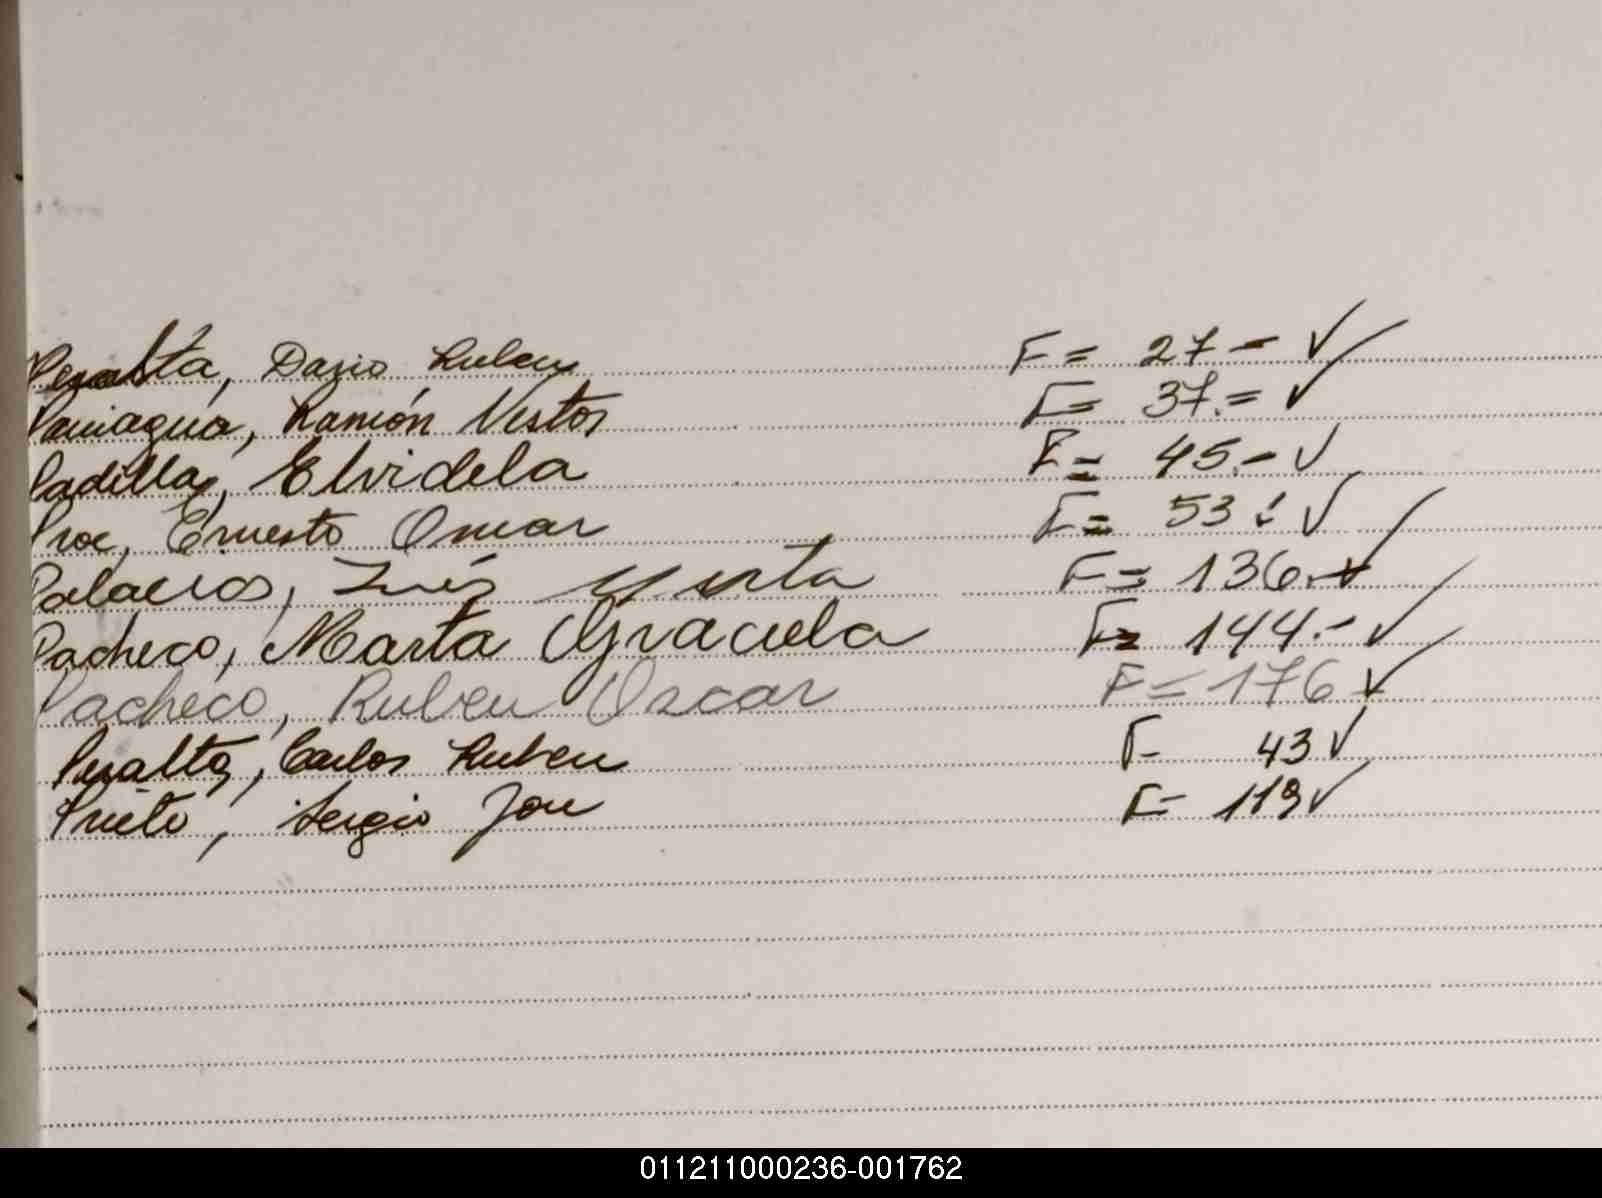 Peralta, Dario Ruben F = 27 = ✓
Paniagua, Ramón Nestor F = 37. = ✓
Padilla, Elvidela F = 45. - ✓
Ernesto Omar F = 53 ✓
Palacios, Inés Mirta F = 136. - ✓
Pacheco, Marta Graciela F = 144. - ✓
Pacheco, Ruben Oscar F = 176 ✓
Peralta, Carlos Ruben F - 43 ✓
Prieto, Sergio José F = 119 ✓
011211000236-001762